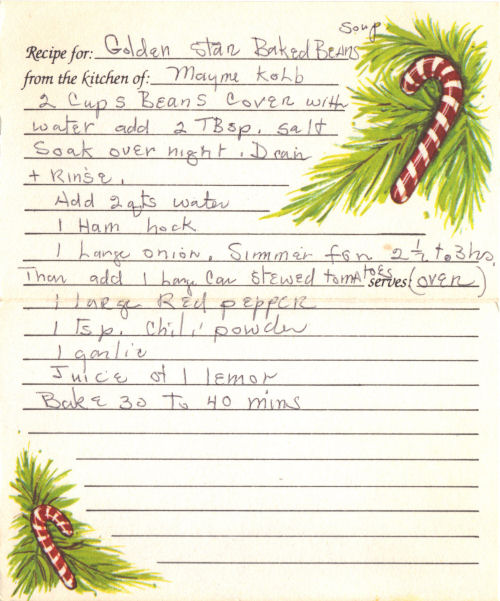 Soup
Recipe for: Golden Star Baked Beans
from the kitchen of: Mayme Kolb
2 Cups Beans Cover with
water add 2 TBsp. salt
Soak over night. Drain
+ Rinse.
Add 2 qts water
1 Ham hock
1 Large onion. Simmer for 2 1/2 to 3 hrs.
Then add 1 Large Can Stewed tomatoes serves: (over)
1 large Red pepper
1 tsp. Chili powder
1 garlic
Juice of 1 lemon
Bake 30 to 40 mins